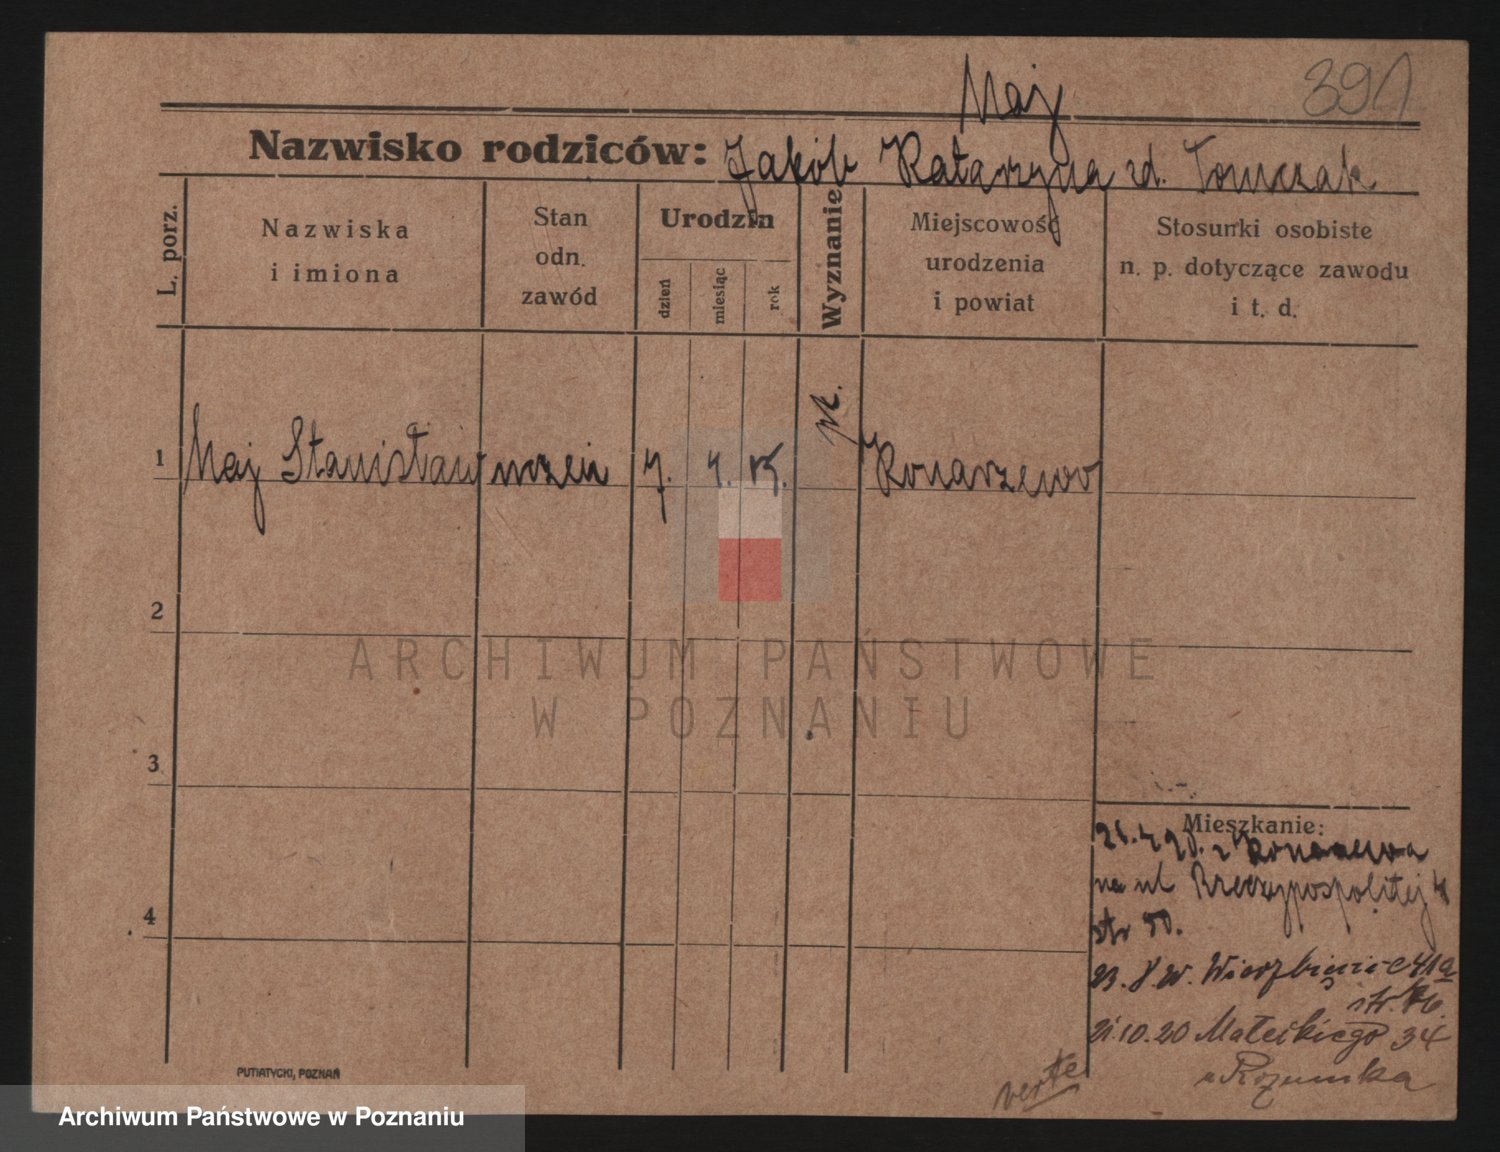 391
Maj
Nazwisko rodziców: Jakób Katarzyna zd. Tomczak
L. porz.
Nazwiska
i imiona
Stan
odn.
zawód
Urodzin
dzień
miesiąc
rok
Wyznanie
Miejscowość
urodzenia
i powiat
Stosunki osobiste
n. p. dotyczące zawodu
i t. d.
1 Maj Stanisław uczeń 7. 4. Konarzewo
2
ARCHIWUM PAŃSTWOWE
W POZNANIU
3
Mieszkanie:
z Konarzewa
na ul Rzeczypospolitej 4
str 50.
23. 8. Wierzbięcice 41a
str.
21.10.20 Matejkiego 34
u Rozumka
4
verte
PUTIATYCKI, POZNAŃ
Archiwum Państwowe w Poznaniu